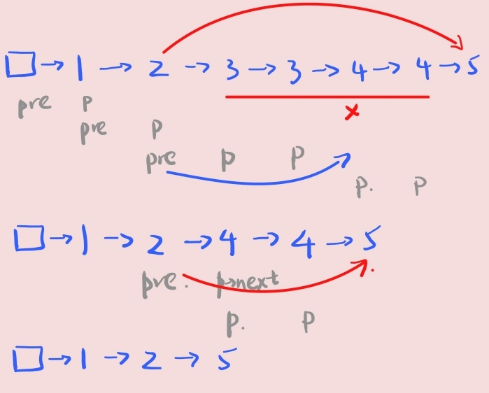 □→1→2→3→3→4→4→5
pre p
x
pre p
pre p p
p. p
□→1→2→4→4→5
pre. p=next
p. p
□→1→2→5